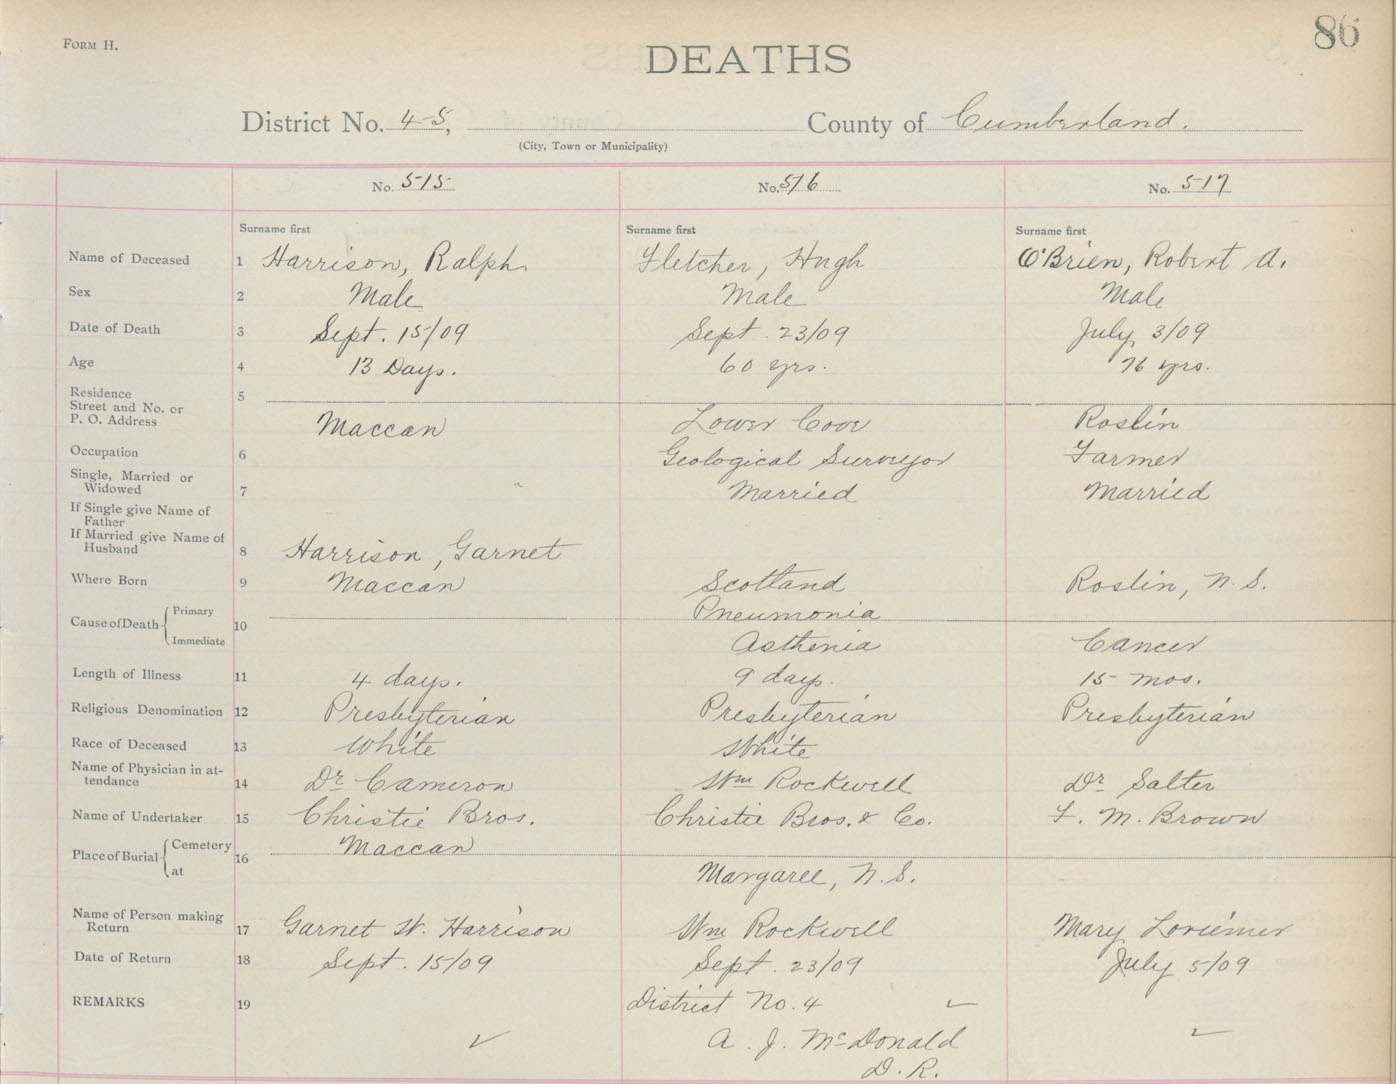 86
FORM H.
DEATHS
District No. 4-5, County of Cumberland.
(City, Town or Municipality)
No. 515 No. 516 No. 517
Surname first Surname first Surname first
Name of Deceased 1 Harrison, Ralph Fletcher, Hugh O'Brien, Robert A.
Sex 2 Male Male Male
Date of Death 3 Sept. 15/09 Sept. 23/09 July 3/09
Age 4 13 Days. 60 yrs. 76 yrs.
Residence 5
Street and No. or
P. O. Address Maccan Lower Cove Roslin
Occupation 6 Geological Surveyor Farmer
Single, Married or
Widowed 7 Married Married
If Single give Name of
Father
If Married give Name of
Husband 8 Harrison, Garnet
Where Born 9 Maccan Scotland Roslin, N.S.
Cause of Death { Primary 10 Pneumonia
Immediate Asthenia Cancer
Length of Illness 11 4 days. 9 days. 15 mos.
Religious Denomination 12 Presbyterian Presbyterian Presbyterian
Race of Deceased 13 White White
Name of Physician in at-
tendance 14 Dr Cameron Wm Rockwell Dr Salter
Name of Undertaker 15 Christie Bros. Christie Bros. & Co. F. M. Brown
Place of Burial { Cemetery 16 Maccan
at Margaree, N.S.
Name of Person making
Return 17 Garnet W. Harrison Wm Rockwell Mary Loriemer
Date of Return 18 Sept. 15/09 Sept. 23/09 July 5/09
REMARKS 19 District No. 4 ✓
✓ A. J. McDonald ✓
D. R.